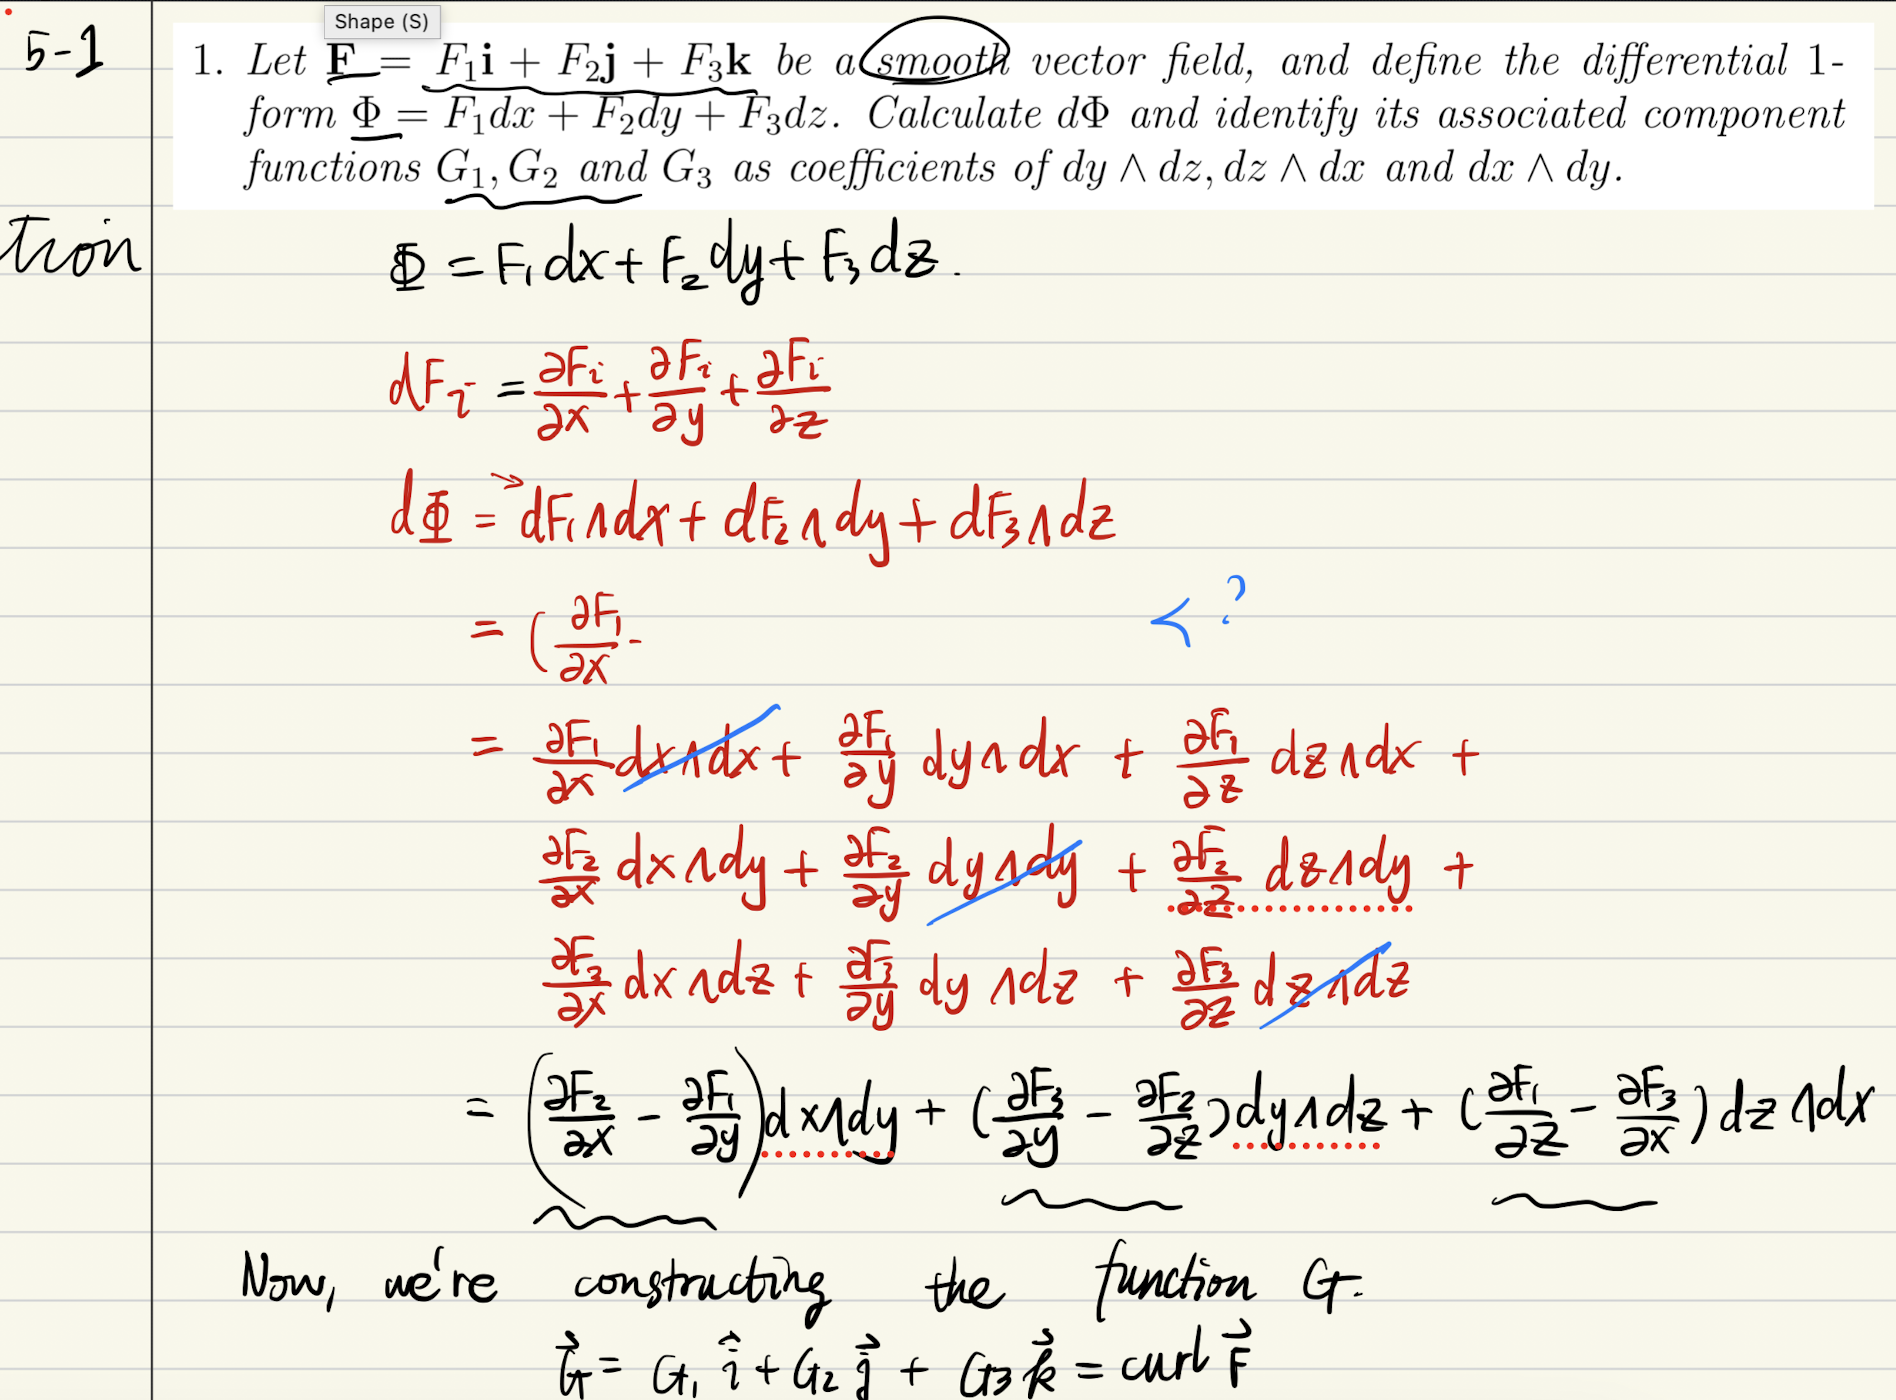 Shape (S)
5-1
1. Let F = F₁i + F₂j + F₃k be a smooth vector field, and define the differential 1-
form Φ = F₁dx + F₂dy + F₃dz. Calculate dΦ and identify its associated component
functions G₁, G₂ and G₃ as coefficients of dy ∧ dz, dz ∧ dx and dx ∧ dy.
tion
Φ = F₁dx + F₂dy + F₃dz.
dFᵢ = ∂Fᵢ/∂x + ∂Fᵢ/∂y + ∂Fᵢ/∂z
dΦ = dF₁∧dx + dF₂∧dy + dF₃∧dz
= (∂F₁/∂x - < ?
= ∂F₁/∂x dx∧dx + ∂F₁/∂y dy∧dx + ∂F₁/∂z dz∧dx +
∂F₂/∂x dx∧dy + ∂F₂/∂y dy∧dy + ∂F₂/∂z dz∧dy +
∂F₃/∂x dx∧dz + ∂F₃/∂y dy∧dz + ∂F₃/∂z dz∧dz
= (∂F₂/∂x - ∂F₁/∂y) dx∧dy + (∂F₃/∂y - ∂F₂/∂z) dy∧dz + (∂F₁/∂z - ∂F₃/∂x) dz∧dx
Now, we're constructing the function G.
G⃗ = G₁ î + G₂ j⃗ + G₃ k⃗ = curl F⃗